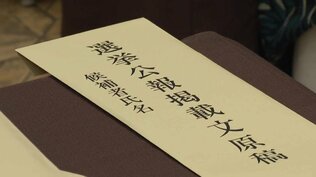 選挙公報掲載文原稿
候補者氏名